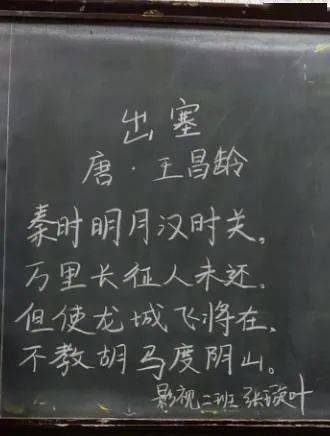 出塞
唐·王昌龄
秦时明月汉时关，
万里长征人未还。
但使龙城飞将在，
不教胡马度阴山。
影视二班 张琰叶